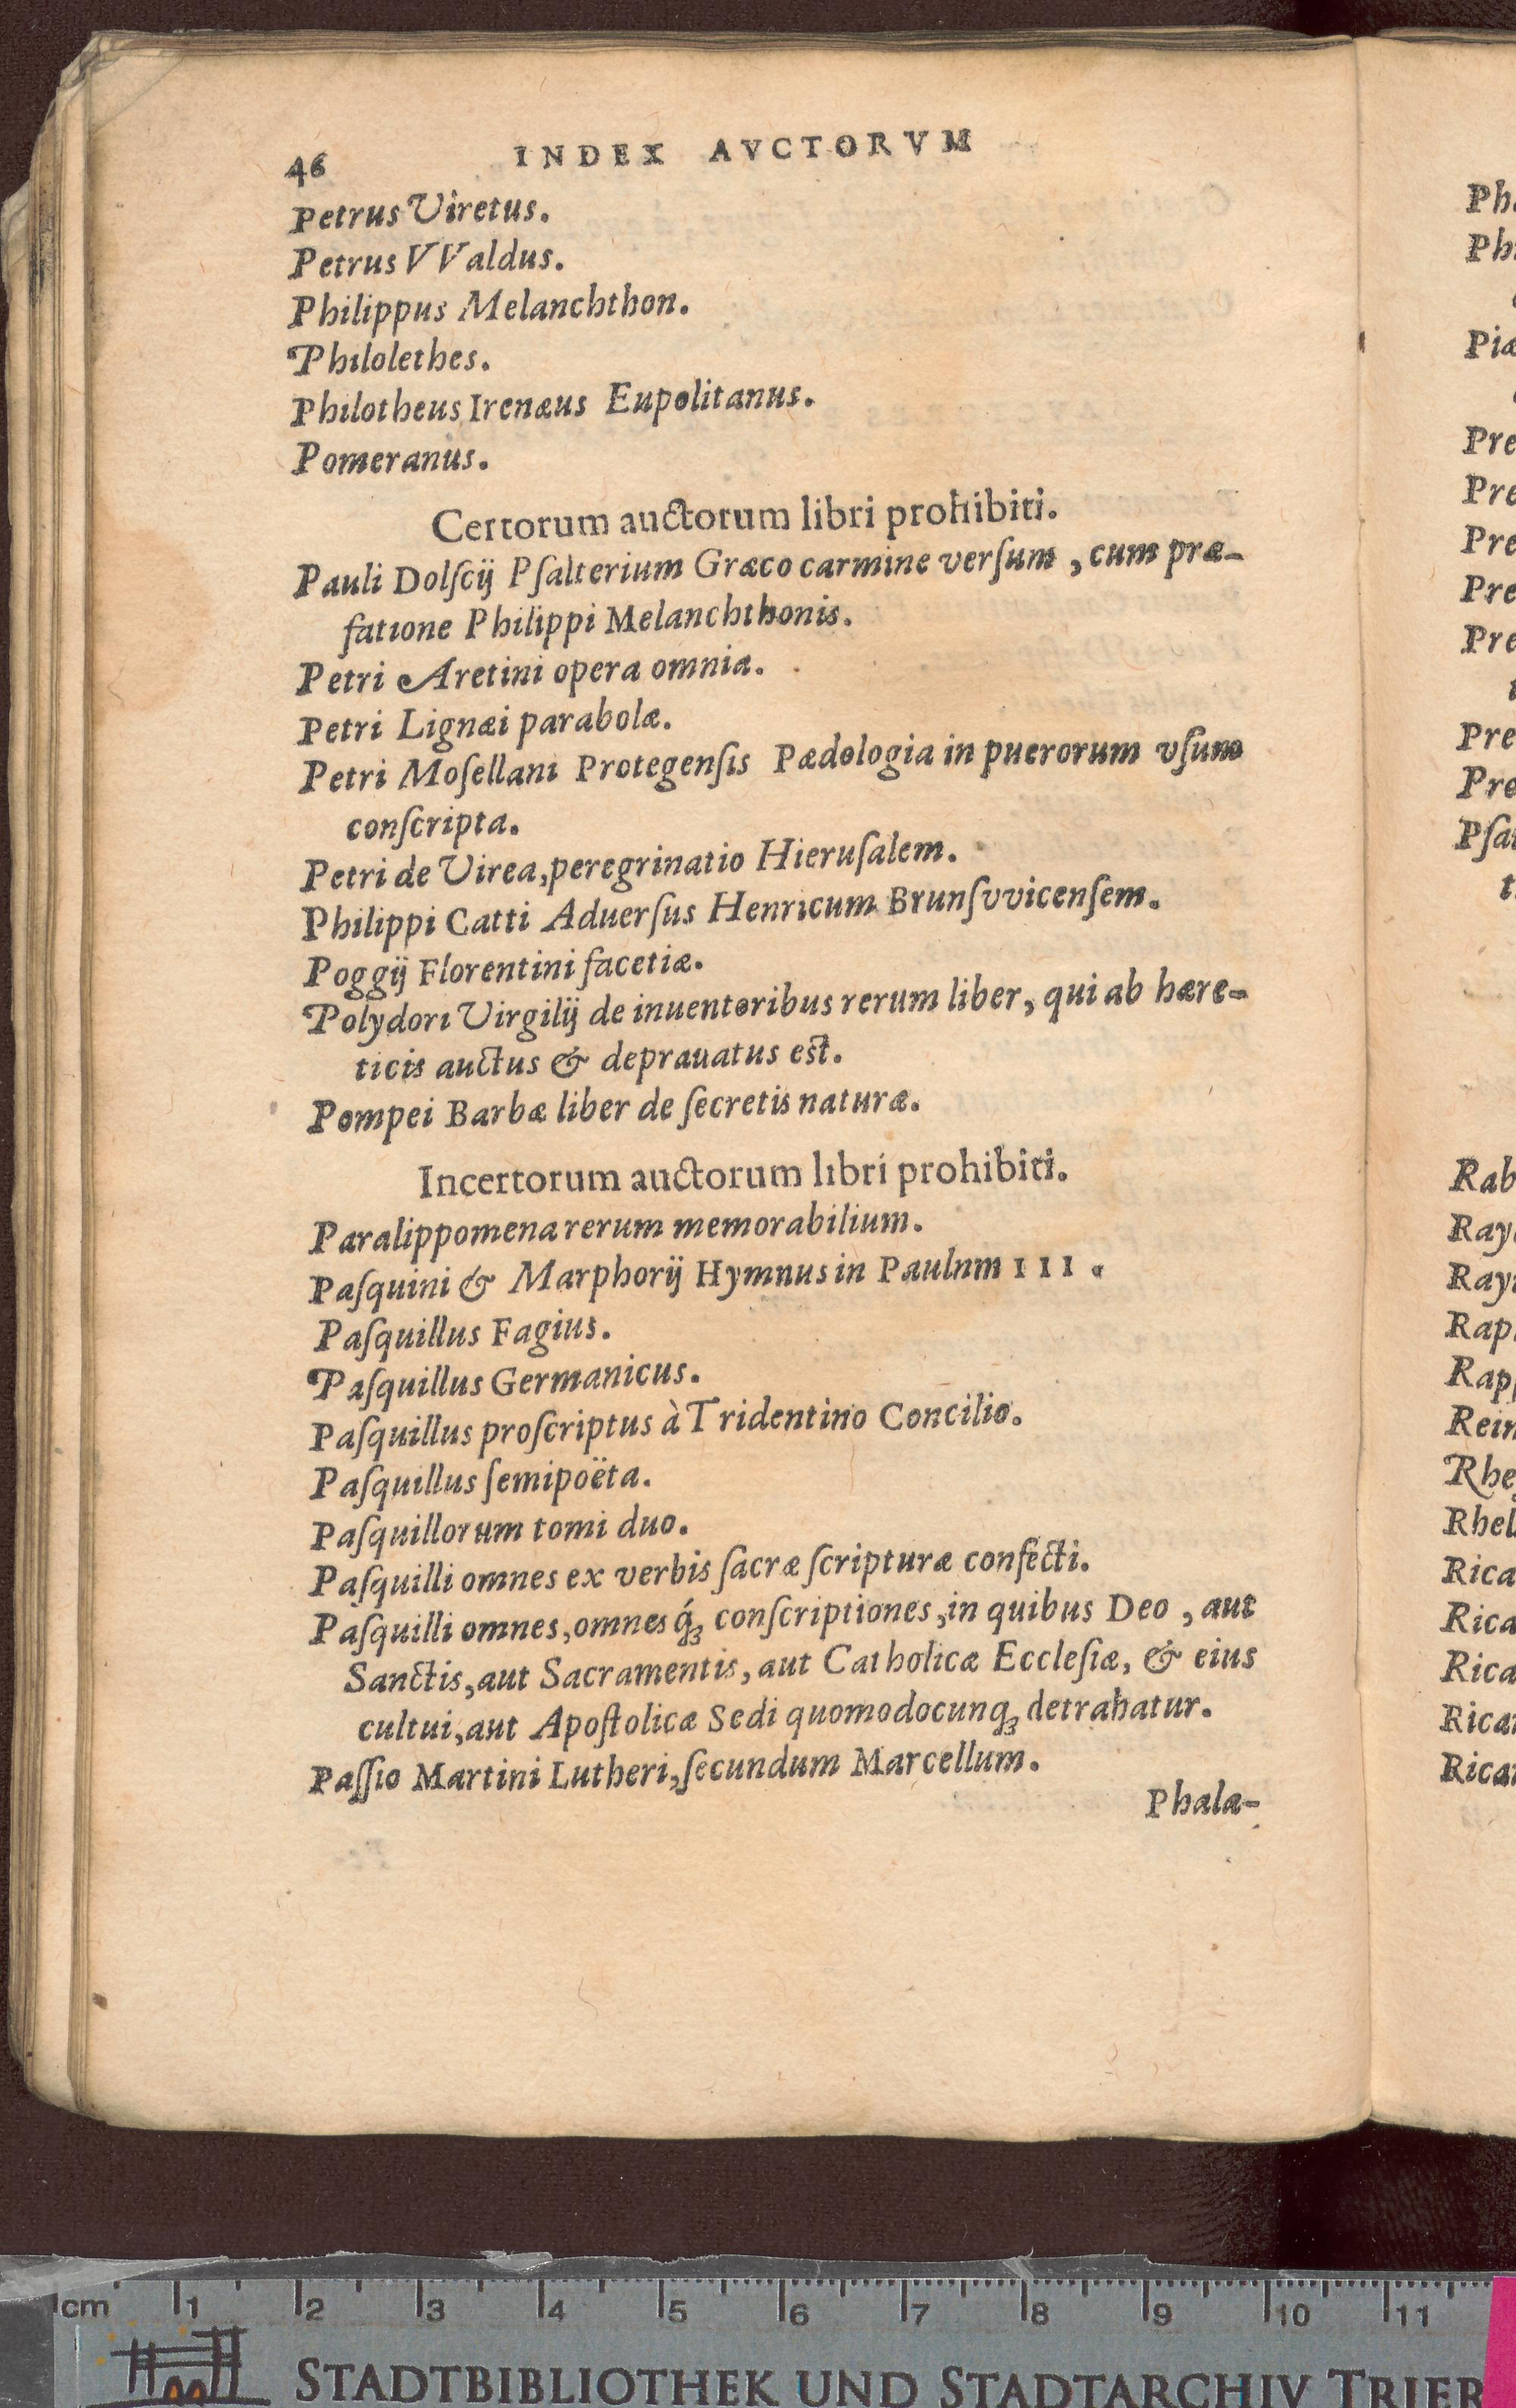 46 INDEX AVCTORVM
Petrus Viretus.
Petrus VValdus.
Philippus Melanchthon.
Philolethes.
Philotheus Irenæus Eupolitanus.
Pomeranus.
Certorum auctorum libri prohibiti.
Pauli Dolſcij Pſalterium Græco carmine verſum, cum præ-
fatione Philippi Melanchthonis.
Petri Aretini opera omnia.
Petri Lignæi parabolæ.
Petri Moſellani Protegenſis Pædologia in puerorum vſum
conſcripta.
Petri de Virea, peregrinatio Hieruſalem.
Philippi Catti Aduerſus Henricum Brunſvvicenſem.
Poggij Florentini facetiæ.
Polydori Virgilij de inuentoribus rerum liber, qui ab hære-
ticis auctus & deprauatus est.
Pompei Barbæ liber de ſecretis naturæ.
Incertorum auctorum libri prohibiti.
Paralippomena rerum memorabilium.
Paſquini & Marphorij Hymnus in Paulnm III.
Paſquillus Fagius.
Paſquillus Germanicus.
Paſquillus proſcriptus à Tridentino Concilio.
Paſquillus ſemipoëta.
Paſquillorum tomi duo.
Paſquilli omnes ex verbis ſacræ ſcripturæ confecti.
Paſquilli omnes, omnesq́ꝫ conſcriptiones, in quibus Deo, aut
Sanctis, aut Sacramentis, aut Catholicæ Eccleſiæ, & eius
cultui, aut Apoſtolicæ Sedi quomodocunqꝫ detrahatur.
Paſſio Martini Lutheri, ſecundum Marcellum.
Phala-
Ph
Ph
Piæ
Pre
Pre
Pre
Pre
Pre
Pre
Pre
Pſal
t
Rab
Ray
Ray
Rap
Rap
Rein
Rhe
Rhel
Rica
Rica
Rica
Rica
Rica
cm 1 2 3 4 5 6 7 8 9 10 11
STADTBIBLIOTHEK UND STADTARCHIV TRIER